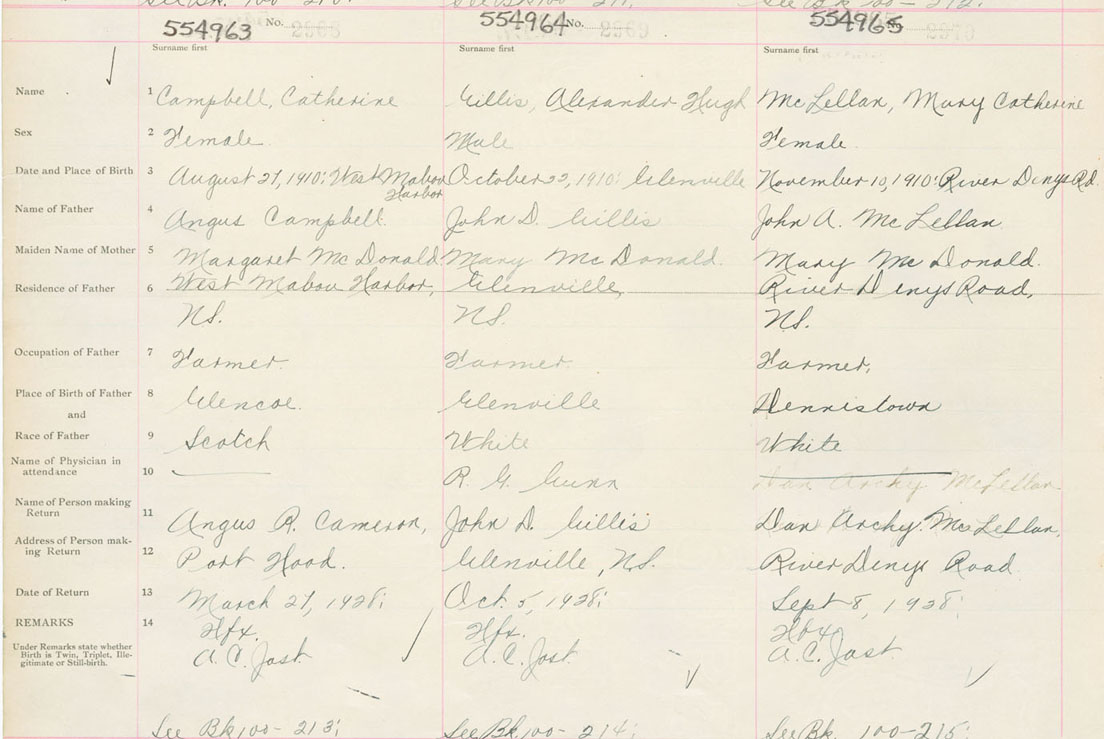 See Bk. 100-210. See Bk 100-211, See Bk 100-212.
554963 No. 554964 No. 554965
Surname first Surname first Surname first
Name 1 Campbell, Catherine Gillis, Alexander Hugh McLellan, Mary Catherine
Sex 2 Female. Male Female.
Date and Place of Birth 3 August 27, 1910: West Mabou October 22, 1910: Glenville November 10, 1910: River Denys Rd.
Harbor
Name of Father 4 Angus Campbell. John D Gillis John A. McLellan
Maiden Name of Mother 5 Margaret McDonald Mary McDonald. Mary McDonald.
Residence of Father 6 West Mabou Harbor, Glenville, River Denys Road,
NS. NS. NS.
Occupation of Father 7 Farmer. Farmer. Farmer,
Place of Birth of Father 8 Glencoe. Glenville Dennistown
and
Race of Father 9 Scotch White White
Name of Physician in
attendance 10 R. G. Gunn Dan Archy McLellan
Name of Person making
Return 11 Angus R. Cameron, John D. Gillis Dan Archy. McLellan,
Address of Person mak-
ing Return 12 Port Hood. Glenville, N.S. River Denys Road
Date of Return 13 March 27, 1928: Oct. 5, 1928: Sept 8, 1928:
REMARKS 14 Hfx. Hfx. Hfx
Under Remarks state whether
Birth is Twin, Triplet, Ille-
gitimate or Still-birth.
A. C. Jost A. C. Jost. A. C. Jost.
See Bk 100-213; See Bk 100-214; See Bk. 100-215;